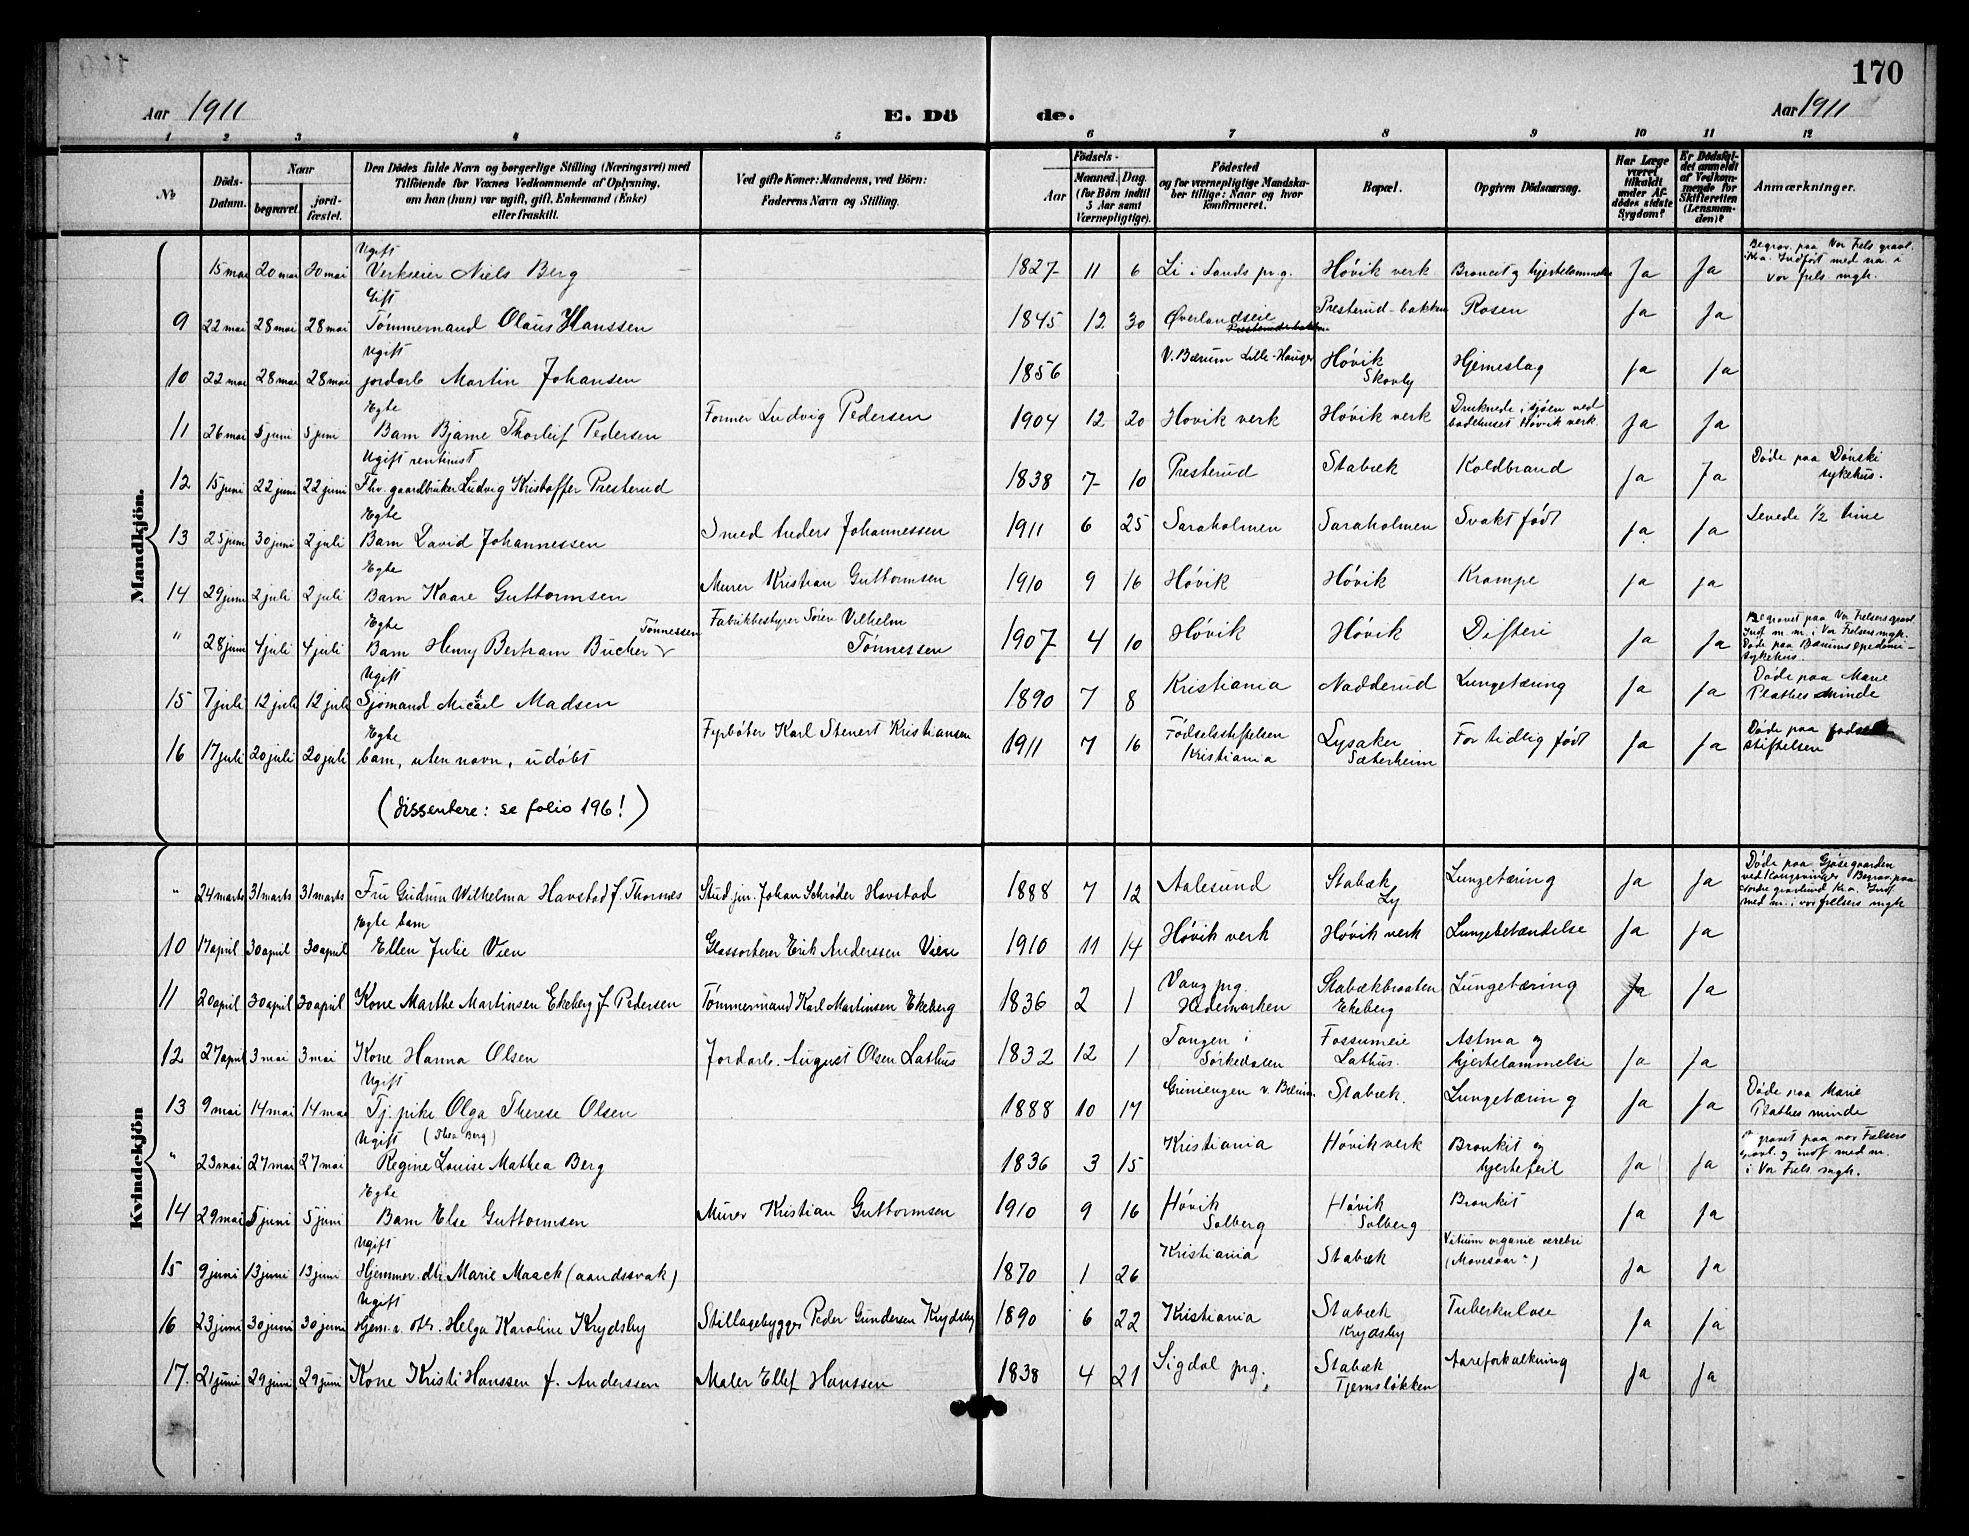 170
Aar 1911
E. Dö
de.
Aar 1911
1 2 3 4 5 6 7 8 9 10 11 12
No
Döds-Datum.
Naar
begravet.
jordfæstet.
Den Dödes fulde Navn og borgerlige Stilling (Næringsvei) med
Tilföiende for Voxnes Vedkommende af Oplysning,
om han (hun) var ugift, gift, Enkemand (Enke)
eller fraskilt.
Ved gifte Koner: Mandens, ved Börn:
Faderens Navn og Stilling.
Födsels-
Aar
Maaned. Dag.
(for Börn indtil
5 Aar samt
Værnepligtige).
Födested
og for værnepligtige Mandskaber tillige: Naar og hvor
konfirmeret.
Bopæl.
Opgiven Dödsaarsag.
Har Læge
været
tilkaldt
under Afdödes sidste
Sygdom?
Er Dödsfaldet anmeldt
af Vedkommende for
Skifteretten
(Lensmanden)?
Anmærkninger.
Mandkjön.
Ugift
15 mai 20 mai 20 mai Verkseier Niels Berg — 1827 11 6 Li i Lands prg. Høvik verk Broncit og hjertelammelse Ja Ja Begrav. paa Vor Frels gravl. Kra. Indført med na. i Vor frels. mgh.
Gift
9 22 mai 28 mai 28 mai Tømmermand Olaus Hanssen 1845 12 30 Øverlandseie Presterudbakken Presterud-bakken Rosen Ja Ja
Ugift
10 22 mai 28 mai 28 mai jordarb Martin Johansen 1856 V. Bærum Lille-Hauger Høvik Skovly Hjerneslag Ja Ja
Egte
11 26 mai 5 juni 5 juni Barn Bjarne Thorleif Pedersen Former Ludvig Pedersen 1904 12 20 Høvik verk Høvik verk Druknede i sjøen ved badehuset Høvik verk. Ja Ja
Ugift rentinist
12 15 juni 22 juni 22 juni Fhv. gaardbruker Ludvig Kristoffer Presterud 1838 7 10 Presterud Stabæk Koldbrand Ja Ja Døde paa Dønski sykehus.
Egte
13 25 juni 30 juni 2 juli Barn David Johannessen Smed Anders Johannessen 1911 6 25 Saraholmen Saraholmen Svakt født Ja Ja Levede 1/2 time
Egte
14 29 juni 2 juli 2 juli Barn Kaare Guttormsen Murer Kristian Guttormsen 1910 9 16 Høvik Høvik Krampe Ja Ja
Egte
" 28 juni 4 juli 4 juli Barn Henry Bertram Bucher Tønnessen Fabrikbestyrer Søren Vilhelm Tønnessen 1907 4 10 Høvik Høvik Difteri Ja Ja Begravet paa Vor Frelsers gravl. Indf m. m. i Vor Frelsers mgh. Døde paa Bærums epedemisykehus.
Ugift
15 7 juli 12 juli 12 juli Sjømand Micael Madsen 1890 7 8 Kristiania Nadderud Lungetæring Ja Ja Døde paa Marie Plathes minde
Egte
16 17 juli 20 juli 20 juli barn, uten navn, udøbt Fyrbøter Karl Stenert Kristiansen 1911 7 16 Fødselsstiftelsen Kristiania Lysaker Sæterheim For tidlig født Ja Ja Døde paa fødselsstiftelsen
(dissentere: se folio 196!)
Kvindekjön
" 24 marts 31 marts 31 marts Fru Gudrun Wilhelma Havstad f. Thornes Stud. jur. Johan Schrøder Havstad 1888 7 12 Aalesund Stabæk Ly Lungetæring Ja Ja Døde paa Gjøsegaarden ved Kongsvinger Begrav. paa Nordre gravlund Kra. Indf med m. i vor frelsers mgh
Egte barn
10 17 april 30 april 30 april Ellen Julie Vien Glassorterer Erik Anderssen Vien 1910 11 14 Høvik verk Høvik verk Lungebetændelse Ja Ja
11 20 april 30 april 30 april Kone Marthe Martinsen Ekeberg f. Pedersen Tømmermand Karl Martinsen Ekeberg 1836 2 1 Vang prg. Hedemarken Stabækbraaten Ekeberg Lungetæring Ja Ja
12 27 april 3 mai 3 mai Kone Hanna Olsen Jordarb. August Olsen Lathus 1832 12 1 Tangen i Sørkedalen Fossumeie Lathus. Astma og hjertelammelse Ja Ja
Ugift
13 9 mai 14 mai 14 mai Tj. pike Olga Therese Olsen 1888 10 17 Griniengen v. Bærum Stabæk. Lungetæring Ja Ja Døde paa Marie Plathes minde
Ugift (Thea Berg)
" 23 mai 27 mai 27 mai Regine Louise Mathea Berg 1836 3 15 Kristiania Høvik verk Bronkit og hjertefeil Ja Ja gravet paa vor Frelsers gravl. og indf med m. i Vor Frels mgh.
Egte
14 29 mai 5 juni 5 juni Barn Else Guttormsen Murer Kristian Guttormsen 1910 9 16 Høvik Solberg Høvik Solberg Bronkit Ja Ja
Ugift
15 9 juni 13 juni 13 juni Hjemmev. dtr. Marie Maack (aandssvak) 1870 1 26 Kristiania Stabæk Vitium organic cerebri Ja Ja
Ugift
16 23 juni 30 juni 30 juni Hjem. v. dtr. Helga Karoline Krydsby Stillagebygger Peder Gundersen Krydsby 1890 6 22 Kristiania Stabæk Krydsby Tuberkulose Ja Ja
17. 21 juni 29 juni 29 juni Kone Kristi Hanssen f. Anderssen Maler Ellef Hanssen 1838 4 21 Sigdal prg. Stabæk Tjernsløkken Aareforkalkning Ja Ja